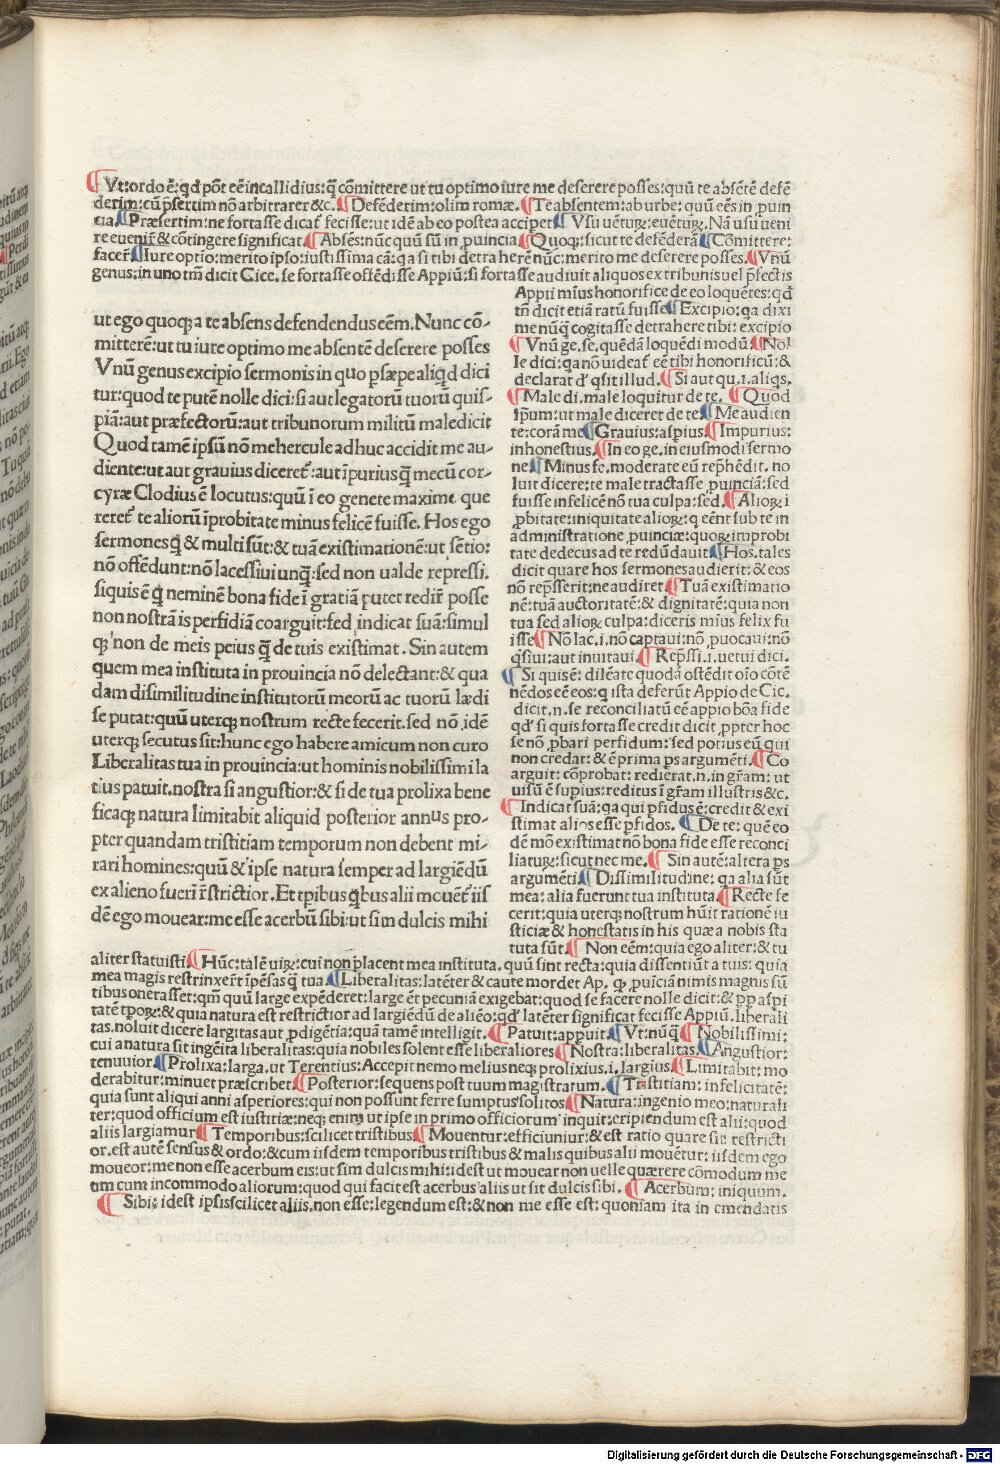 Vt:ordo ē:qd pōt eē incallidius:q̄ cōmittere ut tu optimo iure me deserere posses:quū te absētē defē
derim:cū p̄sertim nō arbitrarer &c. Defēderim:olim romæ. Te absentem:ab urbe:quū eēs in ꝓuin
cia. Præsertim:ne fortasse dicat fecisse:ut idē ab eo postea acciperet. Vsu uēturꝫ:euēturꝫ. Nā usu ueni
re euenir̄ & cōtingere significat. Absēs:nūc quū sū in ꝓuincia. Quoqꝫ:sicut te defēderā. Cōmittere:
facerē. Iure optio:merito ipso:iustissima cā:qa si tibi detraherē nūc:merito me deserere posses. Vnū
genus:in uno tm̄ dicit Cice. se fortasse offēdisse Appiū:si fortasse audiuit aliquos ex tribunis uel p̄fectis
ut ego quoqꝫ a te absens defendendus eēm. Nunc cō-
mitterē:ut tu iure optimo me absentē deserere posses
Vnū genus excipio sermonis in quo ꝑsæpe aliqd dici
tur:quod te putē nolle dici:si aut legatorū tuorū quis-
piā:aut præfectorū:aut tribunorum militū maledicit
Quod tamē ipsū nō mehercule adhuc accidit me au-
diente:ut aut grauius diceret:aut īpurius q̄ mecū cor-
cyræ Clodius ē locutus:quū ī eo genere maxime que
reret te aliorū īprobitate minus felicē fuisse. Hos ego
sermones q & multi sūt:& tuā existimationē:ut sētio:
nō offēdunt:nō lacessiui unq̄:sed non ualde repressi.
si quis ē q neminē bona fide ī gratiā putet redir̄ posse
non nostrā is perfidiā coarguit:sed indicat suā:simul
qꝫ non de meis peius q̄ de tuis existimat. Sin autem
quem mea instituta in prouincia nō delectant:& qua
dam disimilitudine institutorū meorū ac tuorū lædi
se putat:quū uterqꝫ nostrum recte fecerit. sed nō idē
uterqꝫ secutus sit:hunc ego habere amicum non curo
Liberalitas tua in prouincia:ut hominis nobilissimi la
tius patuit. nostra si angustior:& si de tua prolixa bene
ficaqꝫ natura limitabit aliquid posterior annus pro-
pter quandam tristitiam temporum non debent mi-
rari homines:quū & ipse natura semper ad largiēdū
ex alieno fueri r̄strictior. Et tꝑibus qbus alii mouēt iis
dē ego mouear:me esse acerbū sibi:ut sim dulcis mihi
Appii mīus honorifice de eo loquētes:qd
tn̄ dicit etiā ratū fuisse. Excipio:qa dixi
me nūq̄ cogitasse detrahere tibi:excipio
Vnū gē. se. quēdā loquēdi modū. Nol
le dici:qa nō uideat eē tibi honorificū:&
declarat d' qsit illud. Si aut qu. i. aliqs.
Male di. male loquitur de te. Quod
ipsum:ut male diceret de te. Me audien
te:corā me. Grauius:aspius. Impurius:
inhonestius. In eo ge. in eiusmodi sermo
ne. Minus fe. moderate eū repn̄hēdit. no
luit dicere:te male tractasse ꝓuinciā:sed
fuisse infelicē nō tua culpa:sed. Aliorꝫ i
ꝓbitate:iniquitate aliorꝫ:q eēnt sub te in
administratione ꝓuinciæ:quorꝫ improbi
tate dedecus ad te redūdauit. Hos. tales
dicit quare hos sermones audierit:& eos
nō rep̄sserit:ne audiret. Tuā existimatio
nē:tuā auctoritatē:& dignitatē:quia non
tua sed aliorꝫ culpa:diceris mīus felix fu
isse. Nō lac. i. nō captaui:nō ꝓuocaui:nō
qsiui:aut inuitaui. Rep̄ssi. i. uetui dici.
Si quis ē: dilēate quodā ostēdit oīo cōtē
nēdos eē eos:q ista deferūt Appio de Cic.
dicit. n. se reconciliatū eē appio bōa fide
qd' si quis fortasse credit dicit ꝓpter hoc
se nō ꝓbari perfidum:sed potius eū qui
non credat:& ē prima ꝑs argumēti. Co
arguit:cōprobat:redierat. n. in grām:ut
uisū ē supius:reditus ī grām illustris &c.
Indicat suā:qa qui ꝑfidus ē:credit & exi
stimat alios esse ꝑfidos. De te:quē eo
dē mō existimat nō bona fide esse reconci
liaturꝫ:sicut nec me. Sin autē:altera ꝑs
argumēti. Dissimilitudine:qa alia sūt
mea:alia fuerunt tua instituta. Recte fe
cerit:quia uterqꝫ nostrum hūit rationē iu
sticiæ & honestatis in his quæ a nobis sta
tuta sūt. Non eēm:quia ego aliter:& tu
aliter statuisti. Hūc:talē uirꝫ:cui non placent mea instituta. quū sint recta:quia dissentiūt a tuis: quia
mea magis restrinxer̄t īpēsas q̄ tua. Liberalitas:latēter & caute mordet Ap. qꝫ ꝓuiciā nimis magnis sū
tibus onerasset:qm̄ quū large expēderet:large ēt pecuniā exigebat:quod se facere nolle dicit:& ꝓp aspi
tatē tꝑorꝫ:& quia natura est restrictior ad largiēdū de aliēo:qd' latēter significat fecisse Appiū. liberali
tas. noluit dicere largitas aut ꝓdigētia:quā tamē intelligit. Patuit:apparuit. Vt:nūq̄ Nobilissimi:
cui a natura sit ingēita liberalitas:quia nobiles solent esse liberaliores. Nostra:liberalitas. Angustior:
tenuuior. Prolixa:larga. ut Terentius:Accepit nemo melius neqꝫ prolixius. i. largius. Limitabit: mo
derabitur:minuet præscribet. Posterior:sequens post tuum magistratum. Tristitiam: infelicitatē:
quia sunt aliqui anni asperiores:qui non possunt ferre sumptus solitos. Natura:ingenio meo:naturali
ter:quod officium est iustitiæ:neqꝫ enim ut ipse in primo officiorum inquit:eripiendum est alii:quod
aliis largiamur. Temporibus:scilicet tristibus. Mouentur:efficiuniur:& est ratio quare sit restricti
or. est autē sensus & ordo:& cum iisdem temporibus tristibus & malis quibus alii mouētur: iisdem ego
moueor:me non esse acerbum eis:ut sim dulcis mihi:idest ut mouear non uelle quærere cōmodum me
um cum incommodo aliorum:quod qui facit est acerbus aliis ut sit dulcis sibi. Acerbum: iniquum.
Sibi: idest ipsis scilicet aliis. non esse:legendum est:& non me esse est: quoniam ita in emendatis
Digitalisierung gefördert durch die Deutsche Forschungsgemeinschaft - DFG